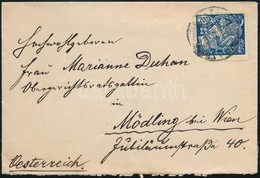 Hochwohlgeboren
Frau Marianne Duhan
Obergerichtsratsgattin
in
Mödling bei Wien
Jubiläumstraße 40.
Oesterreich.